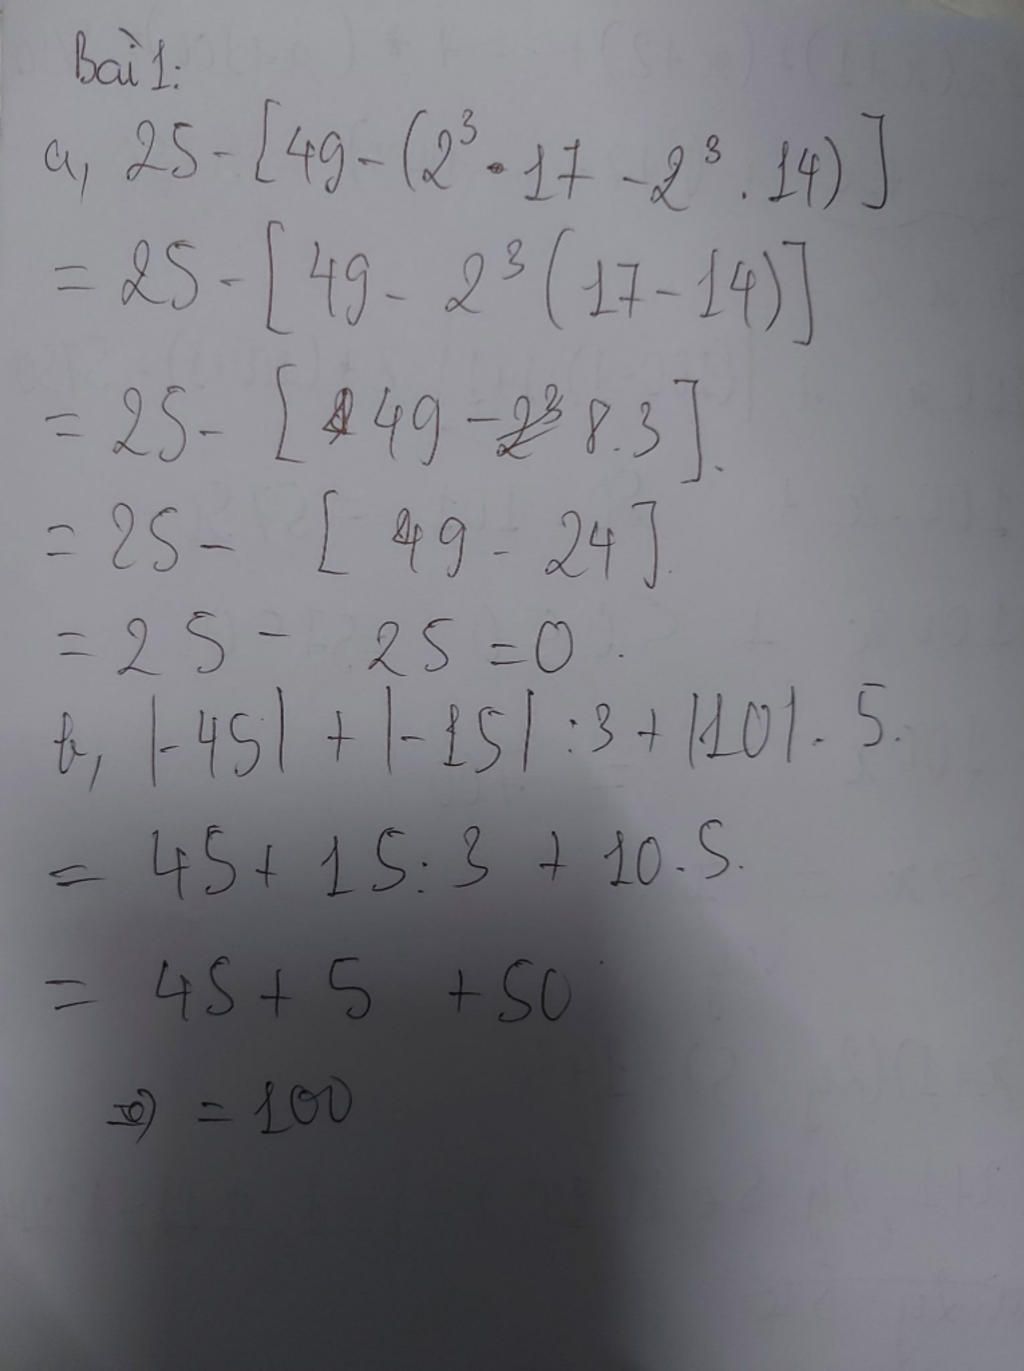 Bài 1:
a, 25 - [49 - (2³ . 17 - 2³ . 14)]
= 25 - [49 - 2³ (17 - 14)]
= 25 - [49 - 8.3].
= 25 - [49 - 24].
= 25 - 25 = 0.
b, |-45| + |-15| : 3 + |10| . 5.
= 45 + 15 : 3 + 10 . 5.
= 45 + 5 + 50
= 100